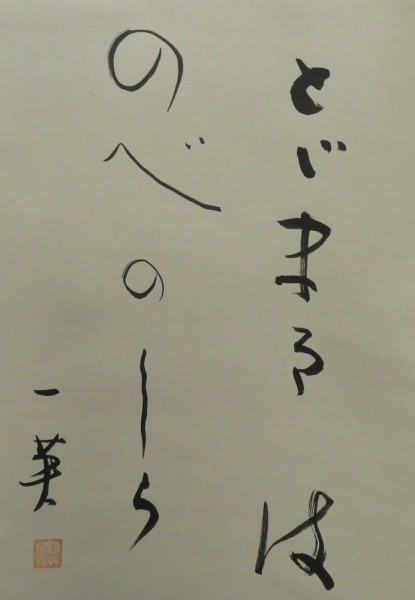 とゞまるは
のべのしら
一英